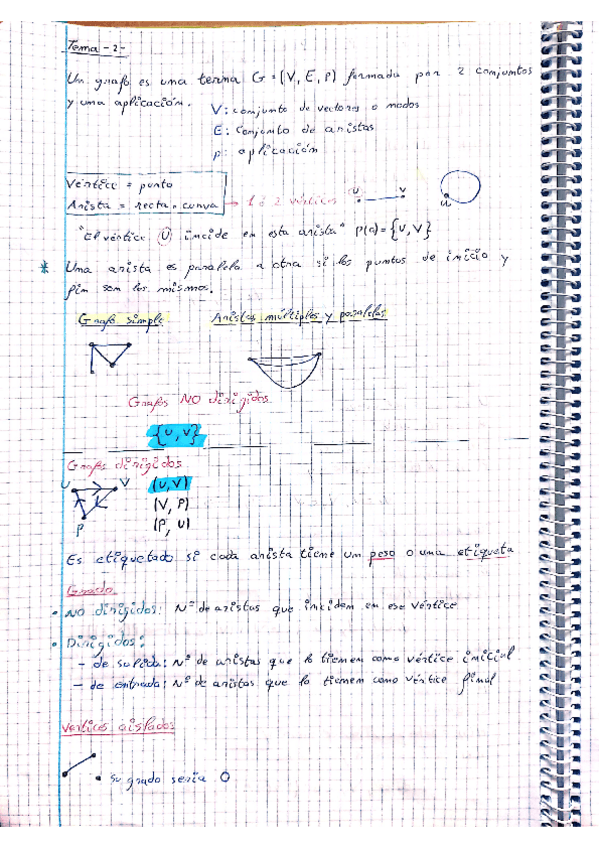 Tema - 2 -
Un grafo es una terna G = (V, E, P) formada por 2 conjuntos
y una aplicación. V: conjunto de vectores o nodos
E: Conjunto de aristas
p: aplicación
Vértice = punto
Arista = recta o curva → 1 ó 2 vértices
u v
u
"El vértice U incide en esta arista" P(a) = {U, V}
* Una arista es paralela a otra si los puntos de inicio y
fin son los mismos.
Grafo simple Aristas múltiples y paralelas
Grafos NO dirigidos
{U, V}
Grafos dirigidos
U V (U, V)
(V, P)
P (P, U)
Es etiquetado si cada arista tiene un peso o una etiqueta
Grado
• NO dirigidos: Nº de aristas que inciden en ese vértice
• Dirigidos:
- de salida: Nº de aristas que lo tienen como vértice inicial
- de entrada: Nº de aristas que lo tienen como vértice final
Vertices aislados
su grado seria 0